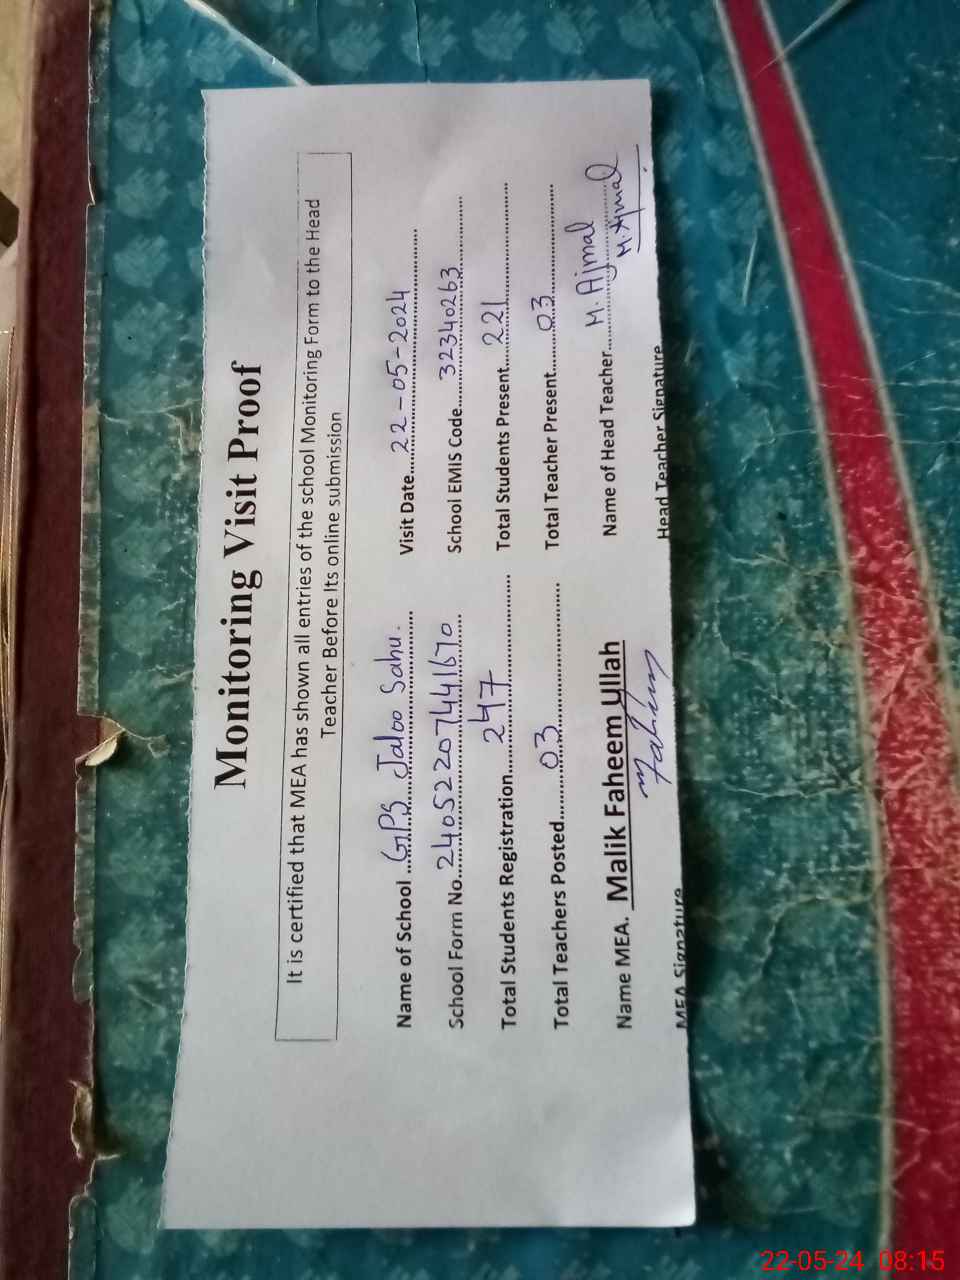 Monitoring Visit Proof
It is certified that MEA has shown all entries of the school Monitoring Form to the Head
Teacher Before Its online submission
Name of School ..... GPS Jaloo Sahu. Visit Date..... 22-05-2024
School Form No..... 24052207441670 School EMIS Code..... 32340263
Total Students Registration..... 247 Total Students Present..... 221
Total Teachers Posted..... 03 Total Teacher Present..... 03
Name MEA. Malik Faheem Ullah Name of Head Teacher..... M. Ajmal
MEA Signature Faheem Head Teacher Signature M. Ajmal
22-05-24 08:15